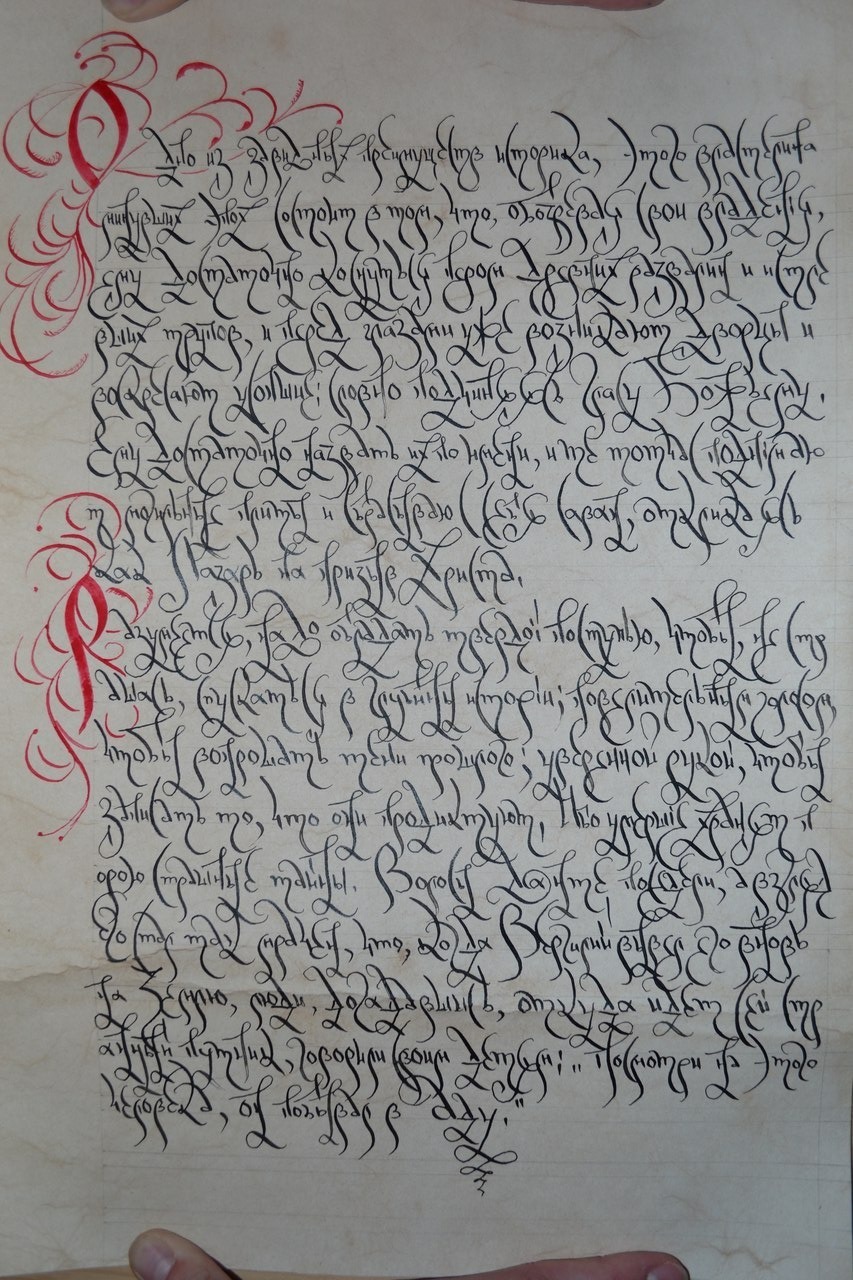 Одно из завидных преимуществ историка, этого властелина
минувших эпох состоит в том, что, обозревая свои владения,
ему достаточно коснуться пером древних развалин и истле
вших трупов, и перед глазами уже возникают дворцы и
воскресают усопшие; словно подчиняясь гласу Божьему.
Ему достаточно назвать их по имени, и те тотчас поднимаю
т могильные плиты и сбрасываю свой саван, откликаясь
как Лазарь на призыв Христа.
Разумеется, надо обладать твердой поступью, чтобы, не стр
ашась, спускаться в глубины истории; повелительным голосом,
чтобы вопрошать тени прошлого; уверенной рукой, чтобы
записать то, что они продиктуют. Ибо умершие хранят п
орою страшные тайны. Волосы Данте поседели, а взгляд
его стал так мрачен, что, когда Вергилий вывел его вновь
на Землю, люди, догадавшись, откуда идет сей стр
анный путник, говорили своим детям: „ Посмотри на этого
человека, он побывал в Аду."